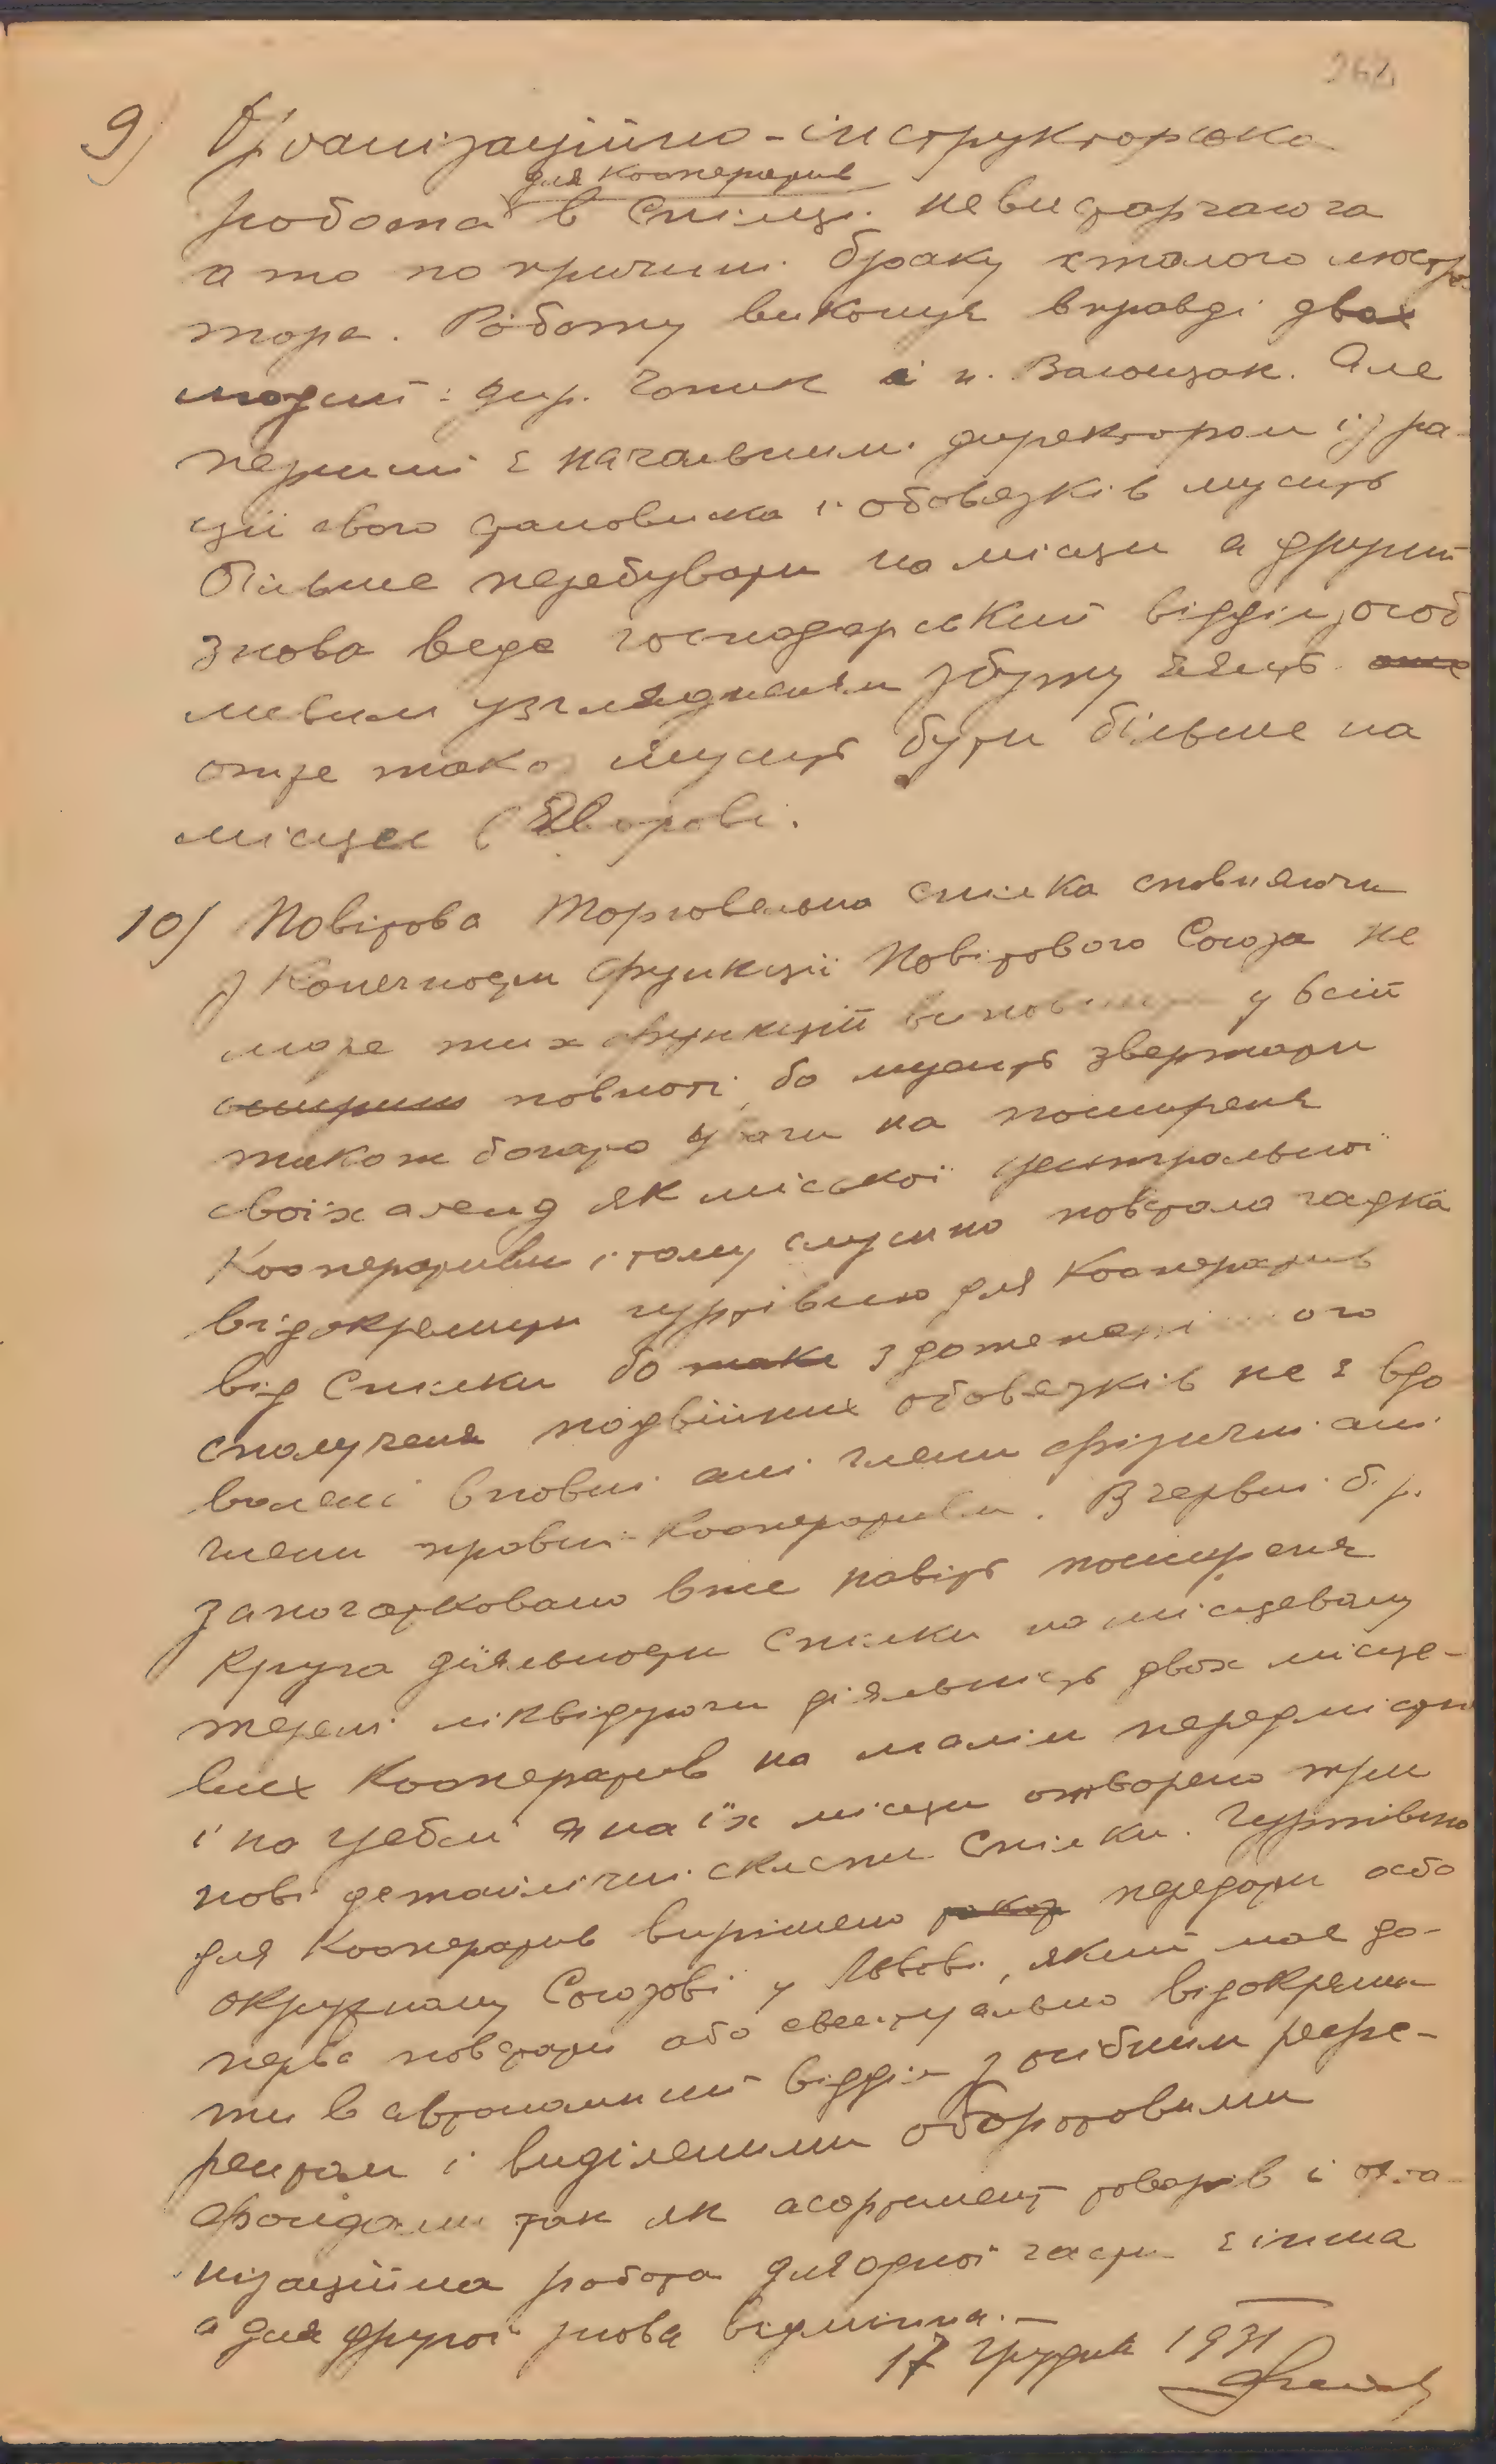 262
9) Організаційно-інструкторська
для кооператив
робота в Спілці невистарчаюча
а то по причині браку сталого люстра-
тора. Роботу виконує вправді двох
людий: дир. Чопик і п. Валощак. Але
перший є начальним директором із ра-
ції свого становиска і обовязків мусить
більше перебувати на місци а другий
знова веде господарський відділ, особ
ливим узглядненям збуту яєць
отже тако мусить бути більше на
місцеє в Яворові.
10) Повітова Торговельна Спілка сповняючи
з конечности функції Повітового Союза не
може тих функцій виповнити у всій
повноті, бо мусить звертати
також богато уваги на поширенє
своїх агенд як міської центральної
Кооперативи і тому слушно повстала гадка
відокремити гуртівню для Кооператив
від Спілки бо з дотеперішного
сполученя подвійних обовязків не є вдо
волені вповні ані члени фізичні ані
члени правні Кооперативи. В червні б.р.
започатковано вже навіть поширенє
круга діяльности Спілки на місцевому
терені ліквідуючи діяльність двох місце-
вих Кооператив на малім передмістю
і на їх місци отворено три
нові детайлічні склепи Спілки. Гуртівню
для Кооператив вирішено передати або
окружному Союзові у Львові, який має до-
перва повстати або евентуально відокреми
ти в автономний відділ з осібним рефе-
рентом і виділеними оборотовими
фондами так як асортимент товарів і орга-
нізаційна робота для одної части є інша
а для другої знова відмінна.—
17 Грудня 1931